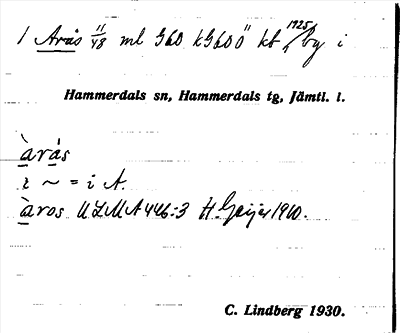 1 Arås 11/48 ml G60 kG60Ö kt 1925 by i
Hammerdals sn, Hammerdals tg, Jämtl. l.
àrås
i ~ = i A.
àros ULMA 446:3 H. Geijer 1910.
C. Lindberg 1930.